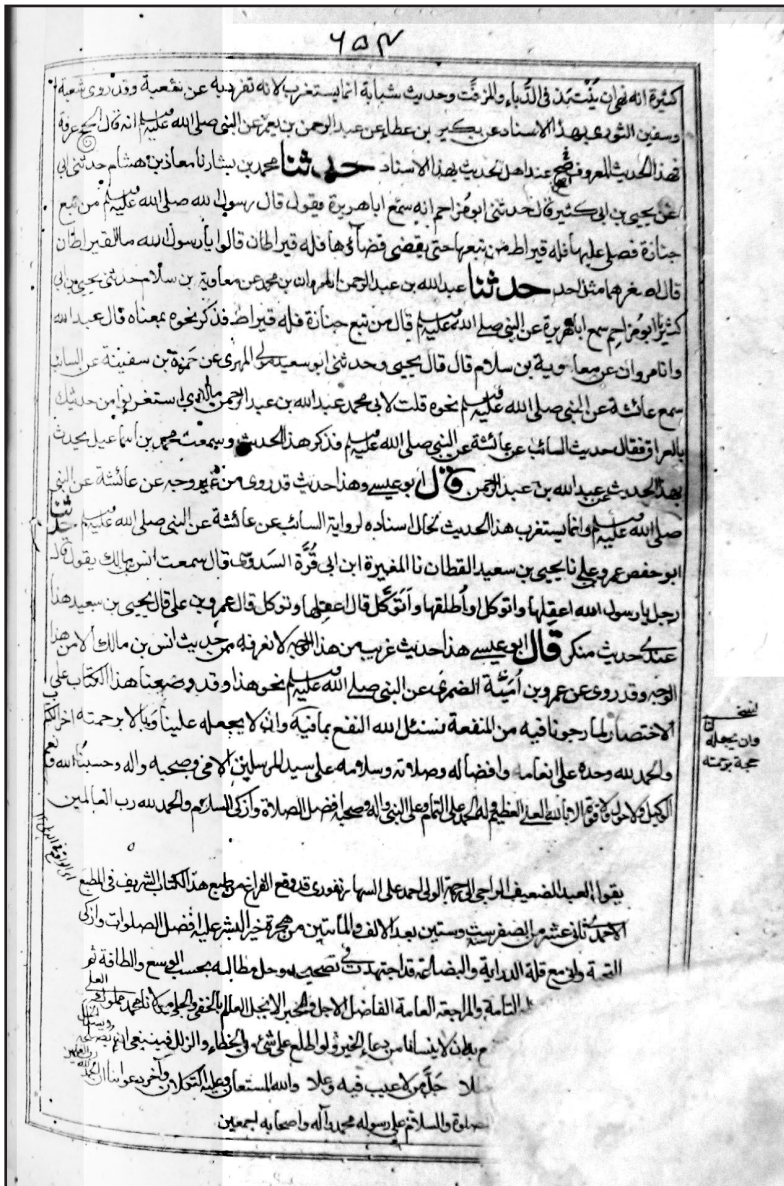 ٦٥٤
كثيرة انه نهى ان يُنْتَبَذ فى الدُّبّاء والمزفّت وحديث شبابة انما يستغرب لانه تفرد به عن شعبة وقد روى شعبة
وسفين الثورى بهذا الاسناد عن بكير بن عطاء عن عبد الرحمن بن يعمر عن النبى صلى الله عليه وسلم انه قال الحج عرفة
فهذا الحديث المعروف اصح عند اهل الحديث بهذا الاسناد حدثنا محمد بن بشار نا معاذ بن هشام حدثنى ابى
عن يحيى بن ابى كثير قال حدثنى ابو مزاحم انه سمع ابا هريرة يقول قال رسول الله صلى الله عليه وسلم من تبع
جنازة فصلى عليها فله قيراط ومن تبعها حتى يقضى قضاؤها فله قيراطان قالوا يا رسول الله ما القيراطان
قال اصغرهما مثل احد حدثنا عبد الله بن عبد الرحمن انا مروان بن محمد عن معاوية بن سلام حدثنى يحيى بن ابى
كثير نا ابو مزاحم سمع ابا هريرة عن النبى صلى الله عليه وسلم قال من تبع جنازة فله قيراط فذكر نحوه بمعناه قال عبد الله
وانا مروان عن معاوية بن سلام قال قال يحيى وحدثنى ابو سعيد مولى المهرى عن حمزة بن سفينة عن السائب
سمع عائشة عن النبى صلى الله عليه وسلم نحوه قلت لابى محمد عبد الله بن عبد الرحمن ما الذى استغربوا من حديثك
بالعراق فقال حديث السائب عن عائشة عن النبى صلى الله عليه وسلم فذكر هذا الحديث وسمعت محمد بن اسماعيل يحدث
بهذا الحديث عن عبد الله بن عبد الرحمن قال ابو عيسے وهذا حديث قد روى من غير وجه عن عائشة عن النبى
صلى الله عليه وسلم وانما يستغرب هذا الحديث لحال اسناده لرواية السائب عن عائشة عن النبى صلى الله عليه وسلم حدثنا
ابو حفص عمرو بن على نا يحيى بن سعيد القطان نا المغيرة ابن ابى قُرَّة السدوسى قال سمعت انس بن مالك يقول قال
رجل يا رسول الله اعقلها واتوكل او اُطلقها واتوكّل قال اعقلها وتوكل قال عمرو بن على قال يحيى بن سعيد هذا
عندى حديث منكر قال ابو عيسے هذا حديث غريب من هذا الوجه لا نعرفه من حديث انس بن مالك الا من هذا
الوجه وقد روى عن عمرو بن اُمَيَّة الضمرى عن النبى صلے الله عليه وسلم نحو هذا وقد وضعنا هذا الكتاب على
الاختصار لما رجونا فيه من المنفعة نسئل الله النفع بما فيه وان لا يجعله علينا وبالا برحمته اخر الكتاب
والحمد لله وحده على انعامه وافضاله وصلاته وسلامه على سيد المرسلين الامى وصحبه واله وحسبنا الله ونعم
الوكيل ولا حول ولا قوة الا بالله العلى العظيم وله الحمد على التمام وعلى النبى واله وصحبه افضل الصلاة وازكى السلام والحمد لله رب العالمين
نسخہ
وان يجعله لنا
حجة برحمته
يقول العبد الضعيف الراجى الى رحمة الولى احمد على السهارنفورى قد وقع الفراغ من طبع هذا الكتاب الشريف فى المطبع
الاحمدى ثانى عشر من الصفر سنة ست وستين بعد الالف والمأتين من هجرة خير البشر عليه افضل الصلوات وازكى
التحية وانى مع قلة الدراية والبضاعة قد اجتهدت فى تصحيحه وحل مطالبه بحسب الوسع والطاقة ثم
التامة والمراجعة العامة الفاضل الاجل والحبر الابجل العالم بالخفى والجلى مولانا
به ان لا ينسانا من دعاء الخير ولو اطلع على شئ من الخطاء والزلل فينبغى ان
جل من لا عيب فيه وعلا والله المستعان وعليه التكلان وآخر دعوانا ان الحمد لله رب العالمين
الصلوة والسلام على رسوله محمد وآله واصحابه اجمعين